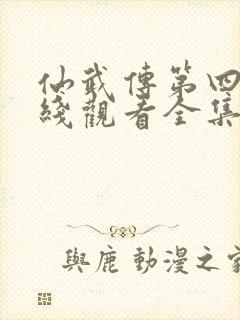 仙武傳第四
綫觀看全集
與鹿動漫之家